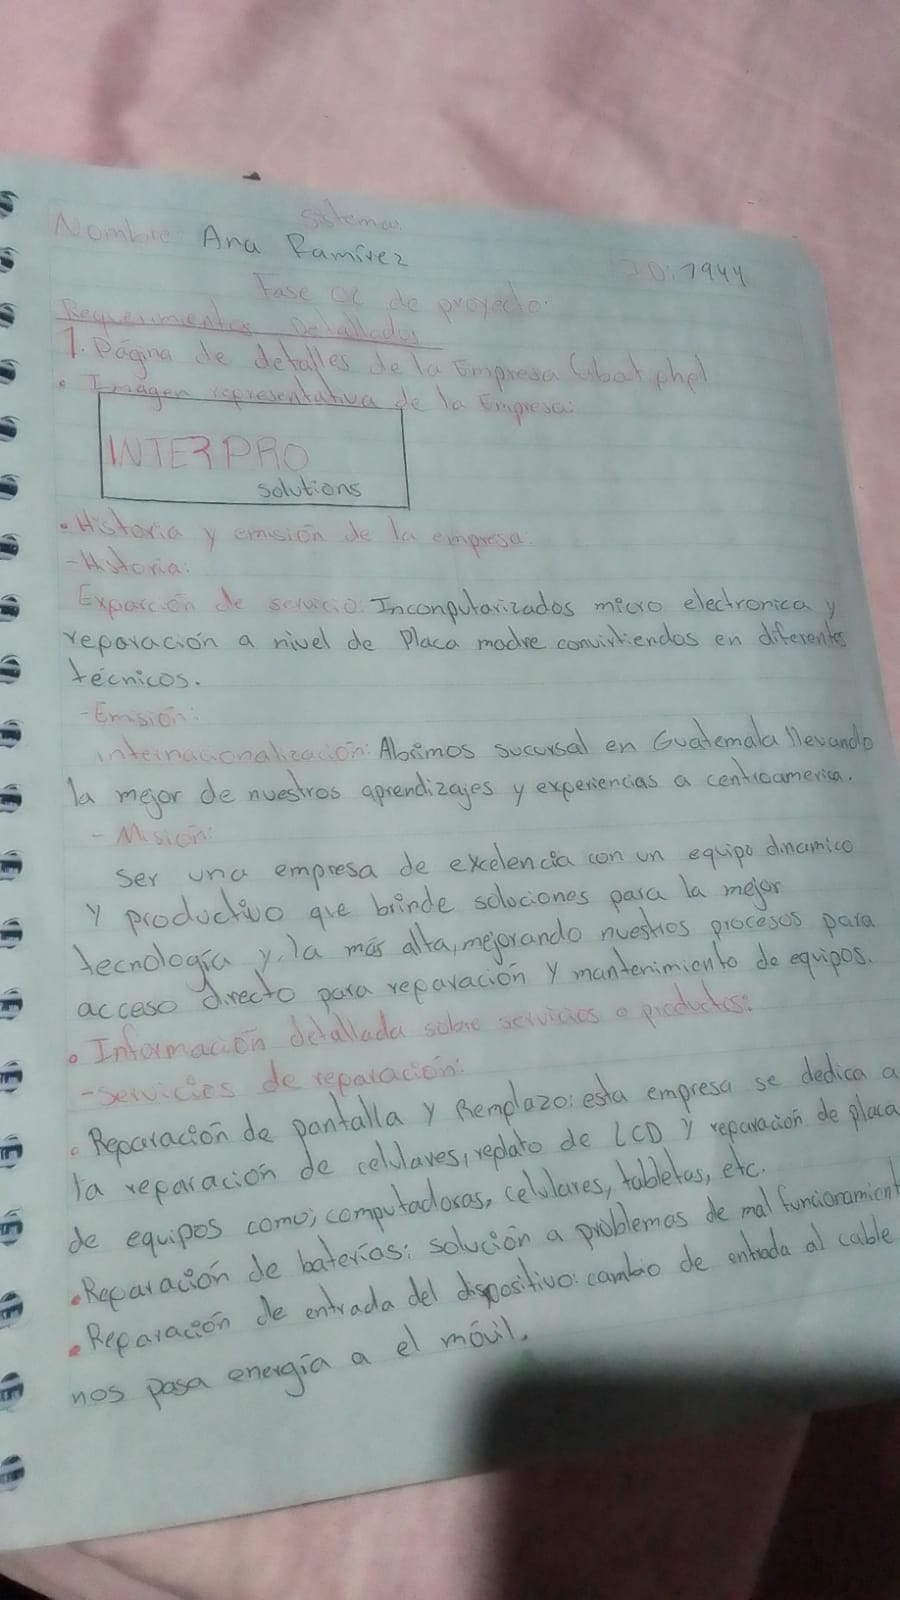 sistemas
Nombre Ana Ramírez ID: 7944
Fase 02 de proyecto.
Requerimientos Detallados
1. Página de detalles de la Empresa (abat.php)
• Imagen representativa de la Empresa:
INTERPRO
solutions
• Historia y emisión de la empresa:
- Historia:
Exparción de servicio: Inconputarizados micro electronica y
reparación a nivel de Placa madre convirtiendos en diferentes
técnicos.
- Emisión:
internacionalización: Abrimos sucursal en Guatemala llevando
la mejor de nuestros aprendizajes y experiencias a centroamerica.
- Misión:
Ser una empresa de excelencia con un equipo dinamico
y productivo que brinde soluciones para la mejor
tecnología y la más alta, mejorando nuestros procesos para
acceso directo para reparación y mantenimiento de equipos.
• Información detallada sobre servicios o productos:
- Servicios de reparación:
• Reparación de pantalla y Remplazo: esta empresa se dedica a
la reparación de celulares, replato de LCD y reparación de placa
de equipos como; computadoras, celulares, tabletas, etc.
• Reparación de baterías: solución a problemas de mal funcionamient
• Reparación de entrada del dispositivo: cambio de entrada al cable
nos pasa energía a el móvil.